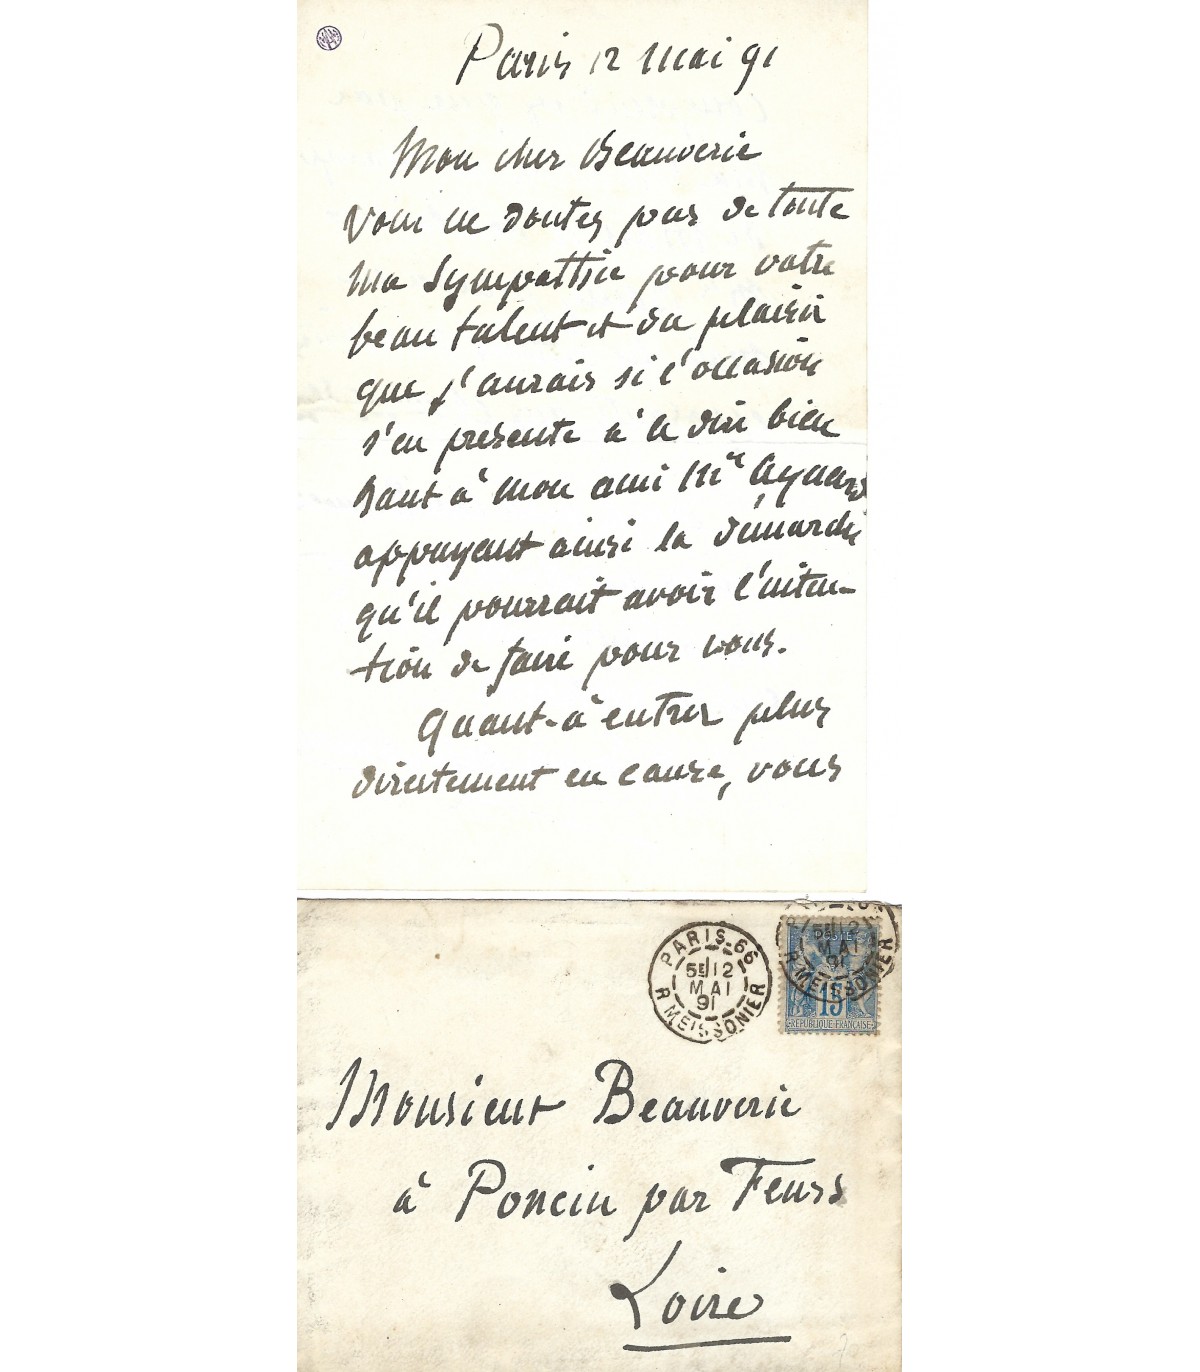 Paris 12 mai 91
Mon cher Beauverie
Vous ne doutez pas de toute
ma sympathie pour votre
beau talent et du plaisir
que j'aurais si l'occasion
s'en présente à le dire bien
haut à mon ami Mr Aynard
appuyant ainsi la démarche
qu'il pourrait avoir l'inten-
tion de faire pour vous.
Quant-à entrer plus
directement en cause, vous
PARIS-66
5E 12
MAI
91
R MEISSONIER
5E 12
MAI
91
R MEISSONIER
POSTES
15
RÉPUBLIQUE FRANÇAISE
Monsieur Beauverie
à Poncin par Feurs
Loire